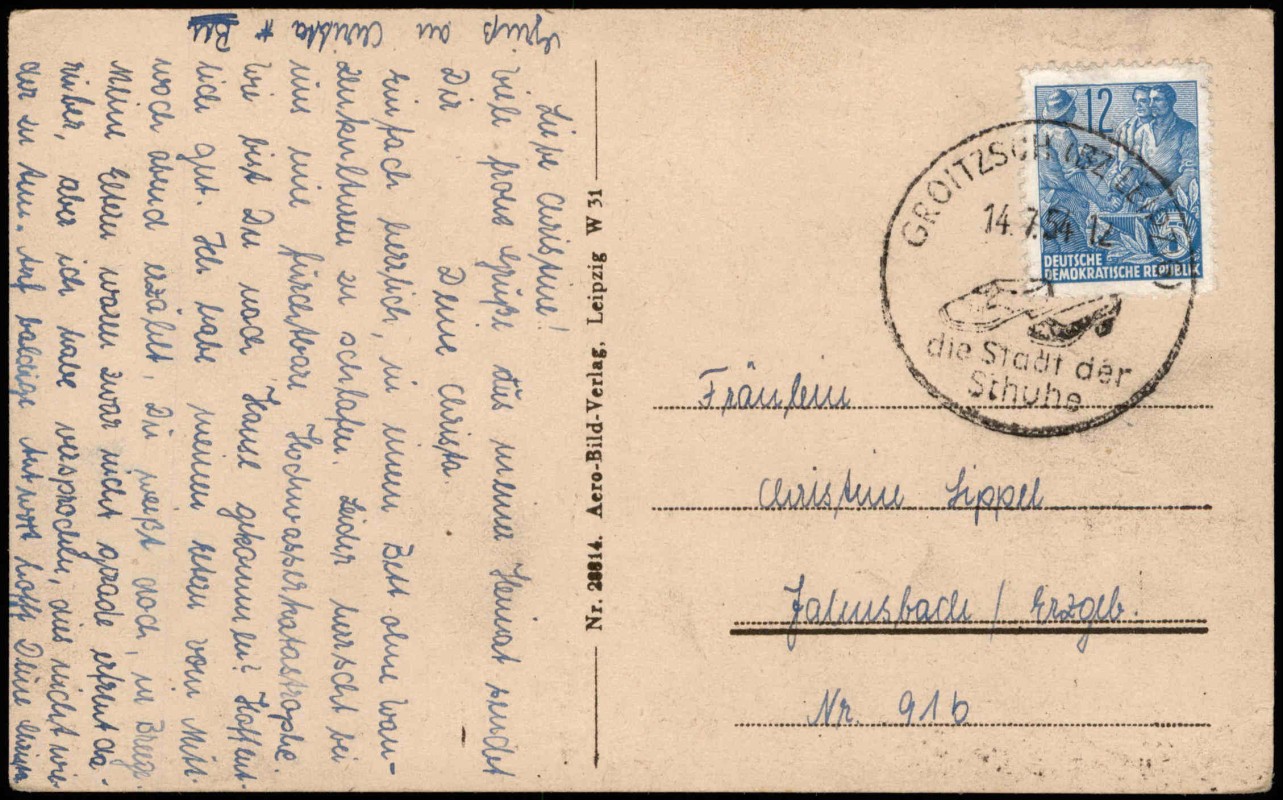 Gruß an Christa * Bts
Liebe Christine!
Viele frohe Grüße aus meiner Heimat sendet
Dir Deine Christa.
Einfach herrlich, in einem Bett ohne Wan-
zenkulturen zu schlafen. Leider herrscht bei
uns eine furchtbare Hochwasserkatastrophe.
Wie bist Du nach Hause gekommen? Hoffent-
lich gut. Ich habe meinen Eltern vom Mitt
woch abend erzählt, Du weißt doch, in
Meine Eltern waren zwar nicht grade erfreut da-
rüber, aber ich habe versprochen, das nicht wie-
der zu tun. Auf baldige Antwort hofft Deine Christa.
Nr. 28814. Aero-Bild-Verlag, Leipzig W 31
12
DEUTSCHE
DEMOKRATISCHE REPUBLIK
GROITZSCH (BZ LEIPZIG)
14.7.54 12
die Stadt der
Schuhe
Fräulein
Christine Lippel
Jahnsbach / Erzgeb.
Nr. 91b